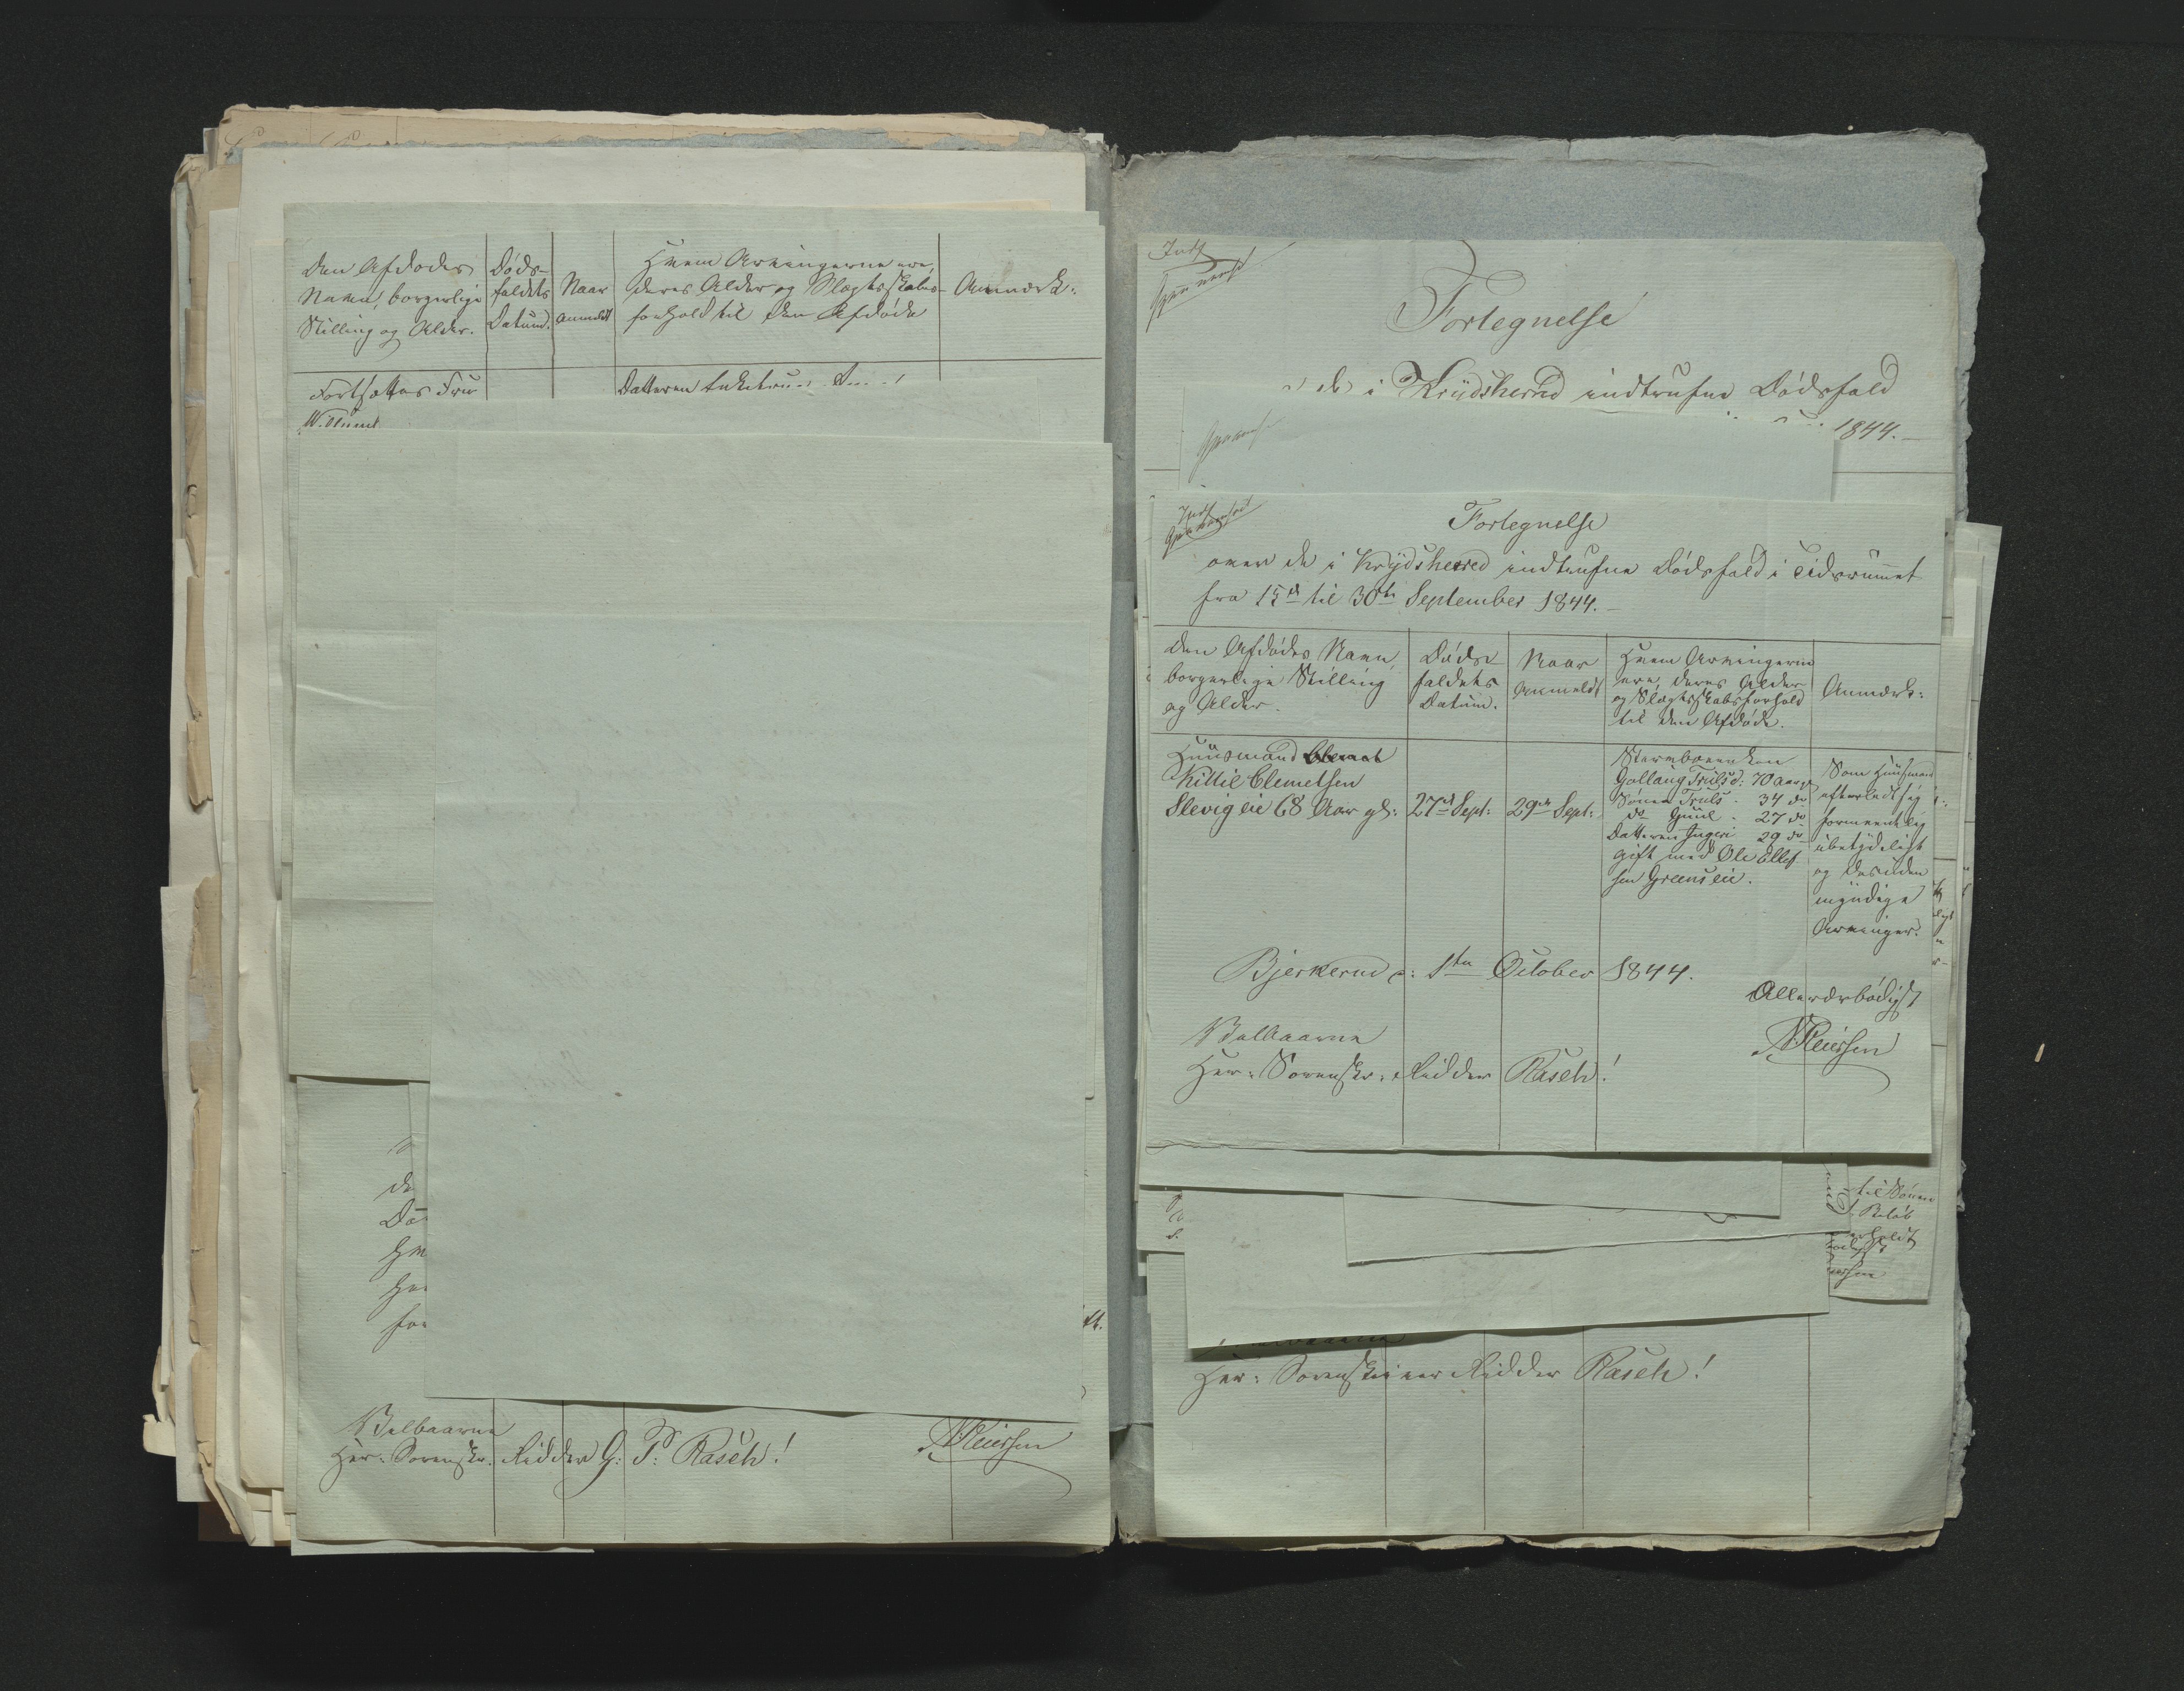 Den Afdødes
Navn, borgerlige
Stilling og Alder.
Døds-
faldets
Datum.
Naar
anmeldt
Hvem Arvingerne ere,
deres Alder og Slægtsskabs-
forhold til den Afdøde
Anmærk:
Fortsættes Fru
Datteren
Velbaarne
Herr: Sorenskr. Ridder G: P: Rasch!
Fortegnelse
de i Krydsherred indtrufne Dødsfald
1844.
Fortegnelse
over de i Krydsherred indtrufne Dødsfald i Tidsrummet
fra 15de til 30te September 1844.
Den Afdødes Navn,
borgerlige Stilling
og Alder.
Døds-
faldets
Datum.
Naar
anmeldt
Hvem Arvingerne
ere, deres Alder
og Slægtsskabsforhold
til den Afdøde.
Anmærk:
Huusmand
Kittil Clemetsen
Slevig eie 68 Aar gl:
27de Sept:
29de Sept:
Stervboenken
Gollaug Trulsd: 70 aar gl
Sønen Truls - 34 do
do Guul - 27 do
Datteren Ingeri 29 do
gift med Ole Ellef
sen Greens eie.
Som Huusmand
efterladt sig
formeentlig
ubetydeligt
og desuden
myndige
Arvinger.
Bjerkerud d: 1ste October 1844.
Allerærbødigst
Velbaarne
Herr: Sorenskr. Ridder Rasch!
til Sønen
Herr: Sorenskriver Ridder Rasch!